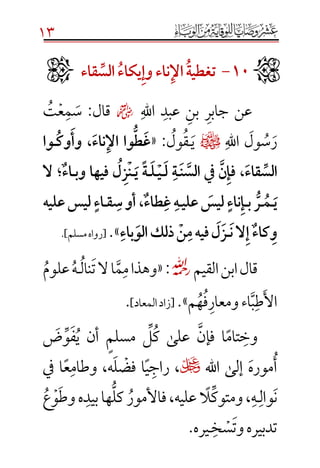 عَشْرُ وَصَايَا لِلْوِقَايَةِ مِنَ الْوَبَاءِ ١٣
١٠- تغطيةُ الإِناء وإِيكاءُ السِّقاء
عن جابرِ بنِ عبدِ اللهِ رضي الله عنه قال: سَمِعْتُ
رَسُولَ اللهِ ﷺ يَقُولُ: «غَطُّوا الإِناءَ، وَأَوكُوا
السِّقاءَ، فَإِنَّ في السَّنَةِ لَيْلَةً يَنْزِلُ فيها وبـاءٌ؛ لا
يَـمُـرُّ بـإِناءٍ ليسَ عليـهِ غِطاءٌ، أو سِـقـاءٍ ليس عليه
وِكاءٌ إلا نَـزَلَ فيه مِنْ ذلك الوَباءِ». [رواه مسلم].
قال ابن القيم رحمه الله: «وهذا مِـمَّا لا تنالُـهُ علومُ
الأَطِبَّاءِ ومعارِفُهُم». [زاد المعاد].
وخِتامًا فإنَّ علىٰ كُلِّ مسلمٍ أن يُفَوِّضَ
أُمورَهَ إلىٰ الله ﷻ، راجِيًا فَضْلَه، وطامِعًا في
نَوالِـهِ، ومتوكِّلًا عليه، فالأمورُ كلُّها بيدِه وطَوْعُ
تدبيره وتَسْخِـيره.